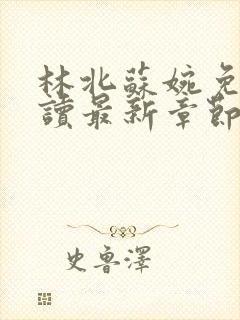 林北蘇婉免
讀最新章節
史魯澤